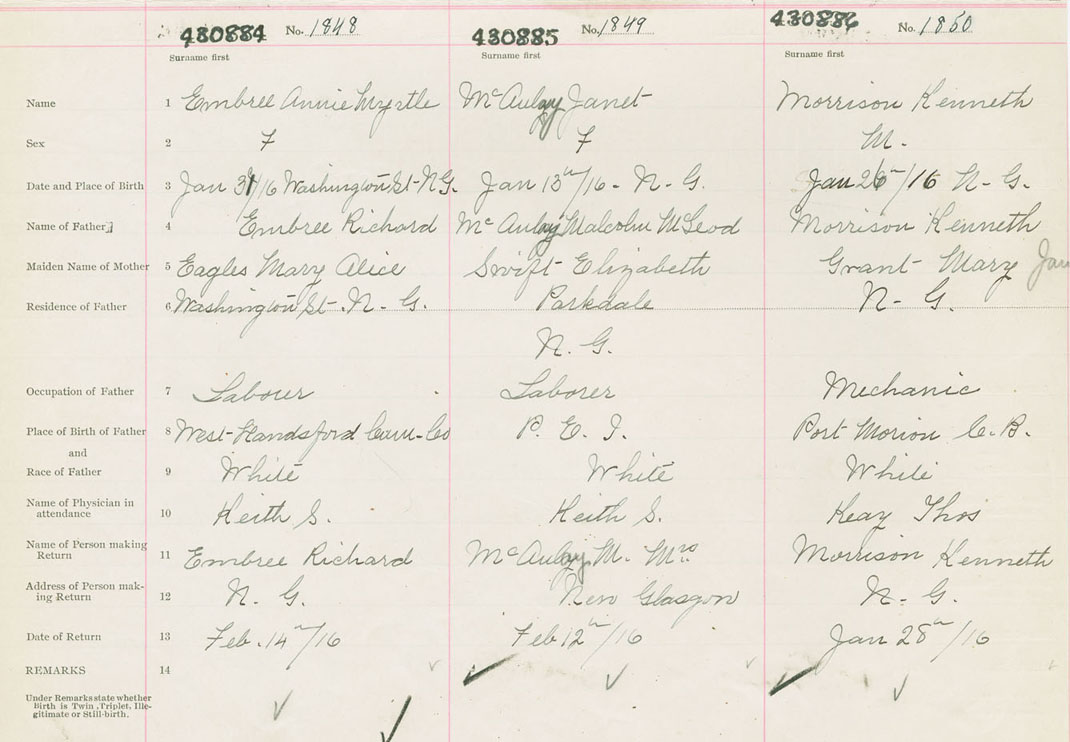 430884 No. 1848 430885 No. 1849 430886 No. 1850
Surname first Surname first Surname first
Name 1 Embree Annie Myrtle McAulay Janet Morrison Kenneth
Sex 2 F F M.
Date and Place of Birth 3 Jan 31/16 Washington St- N G. Jan 13th/16 - N- G. Jan 26th/16 N- G.
Name of Father 4 Embree Richard McAulay Malcolm McLeod Morrison Kenneth
Maiden Name of Mother 5 Eagles Mary Alice Swift Elizabeth Grant Mary Jan
Residence of Father 6 Washington St - N- G. Parkdale N- G.
N. G.
Occupation of Father 7 Labour Laborer Mechanic
Place of Birth of Father 8 West Handsford Cum- Co P. E. I. Port Morion C. B.
and
Race of Father 9 White White White
Name of Physician in
attendance 10 Keith S. Keith S. Keay Thos
Name of Person making
Return 11 Embree Richard McAulay M. Mrs Morrison Kenneth
Address of Person mak-
ing Return 12 N. G. New Glasgow N- G.
Date of Return 13 Feb. 14th/16 Feb 12th/16 Jan 28th/16
REMARKS 14
Under Remarks state whether
Birth is Twin, Triplet, Ille-
gitimate or Still-birth.